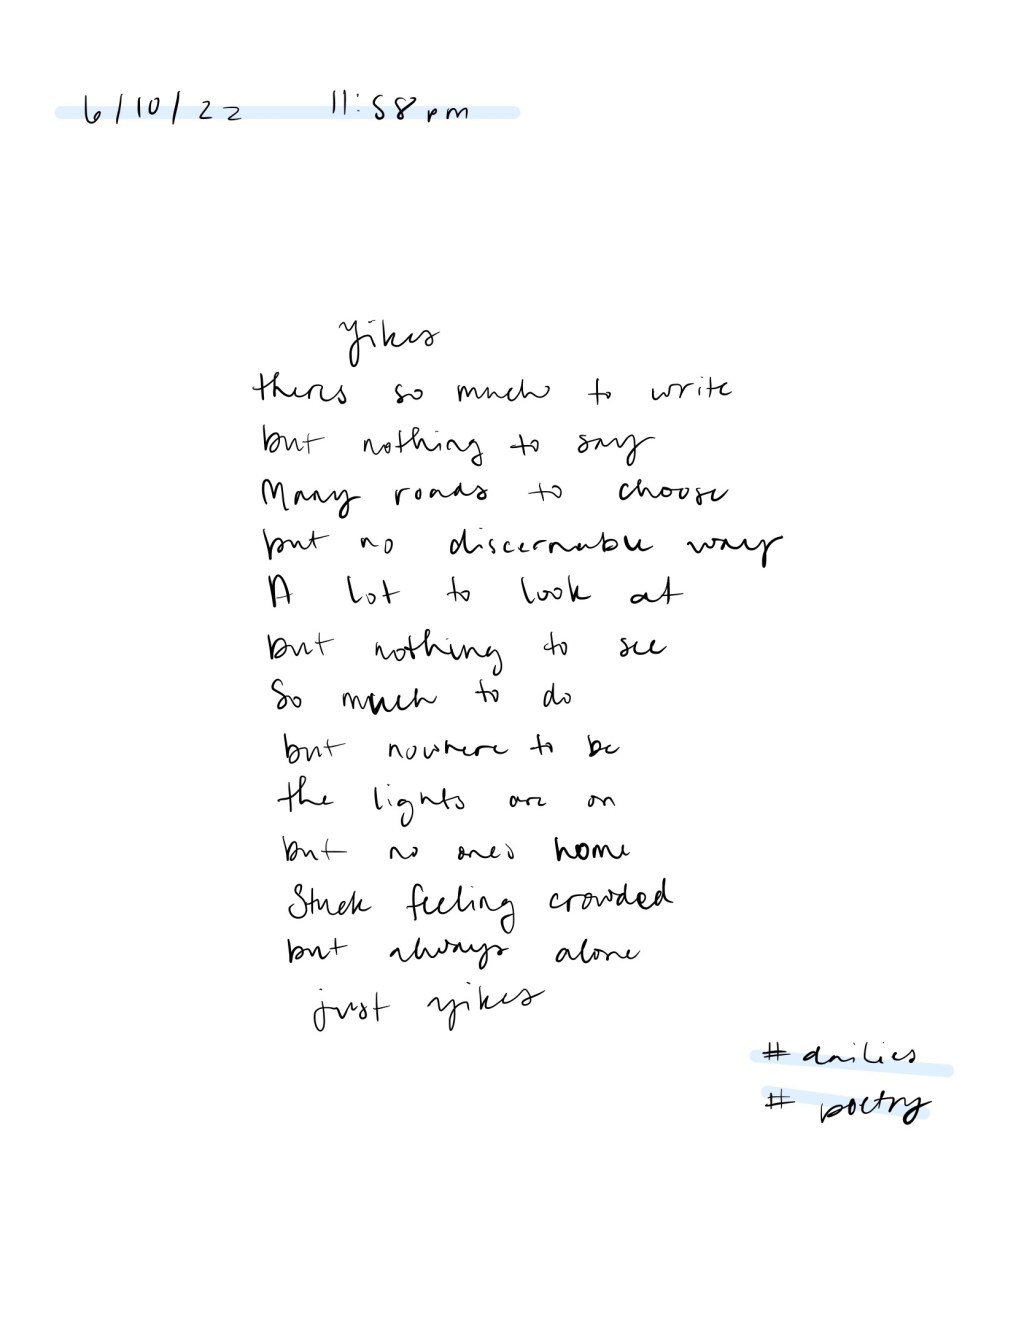 6/10/22 11:58pm
Yikes
theres so much to write
but nothing to say
Many roads to choose
but no discernable way
A lot to look at
but nothing to see
So much to do
but nowhere to be
the lights are on
but no one's home
Stuck feeling crowded
but always alone
just yikes
# dailies
# poetry